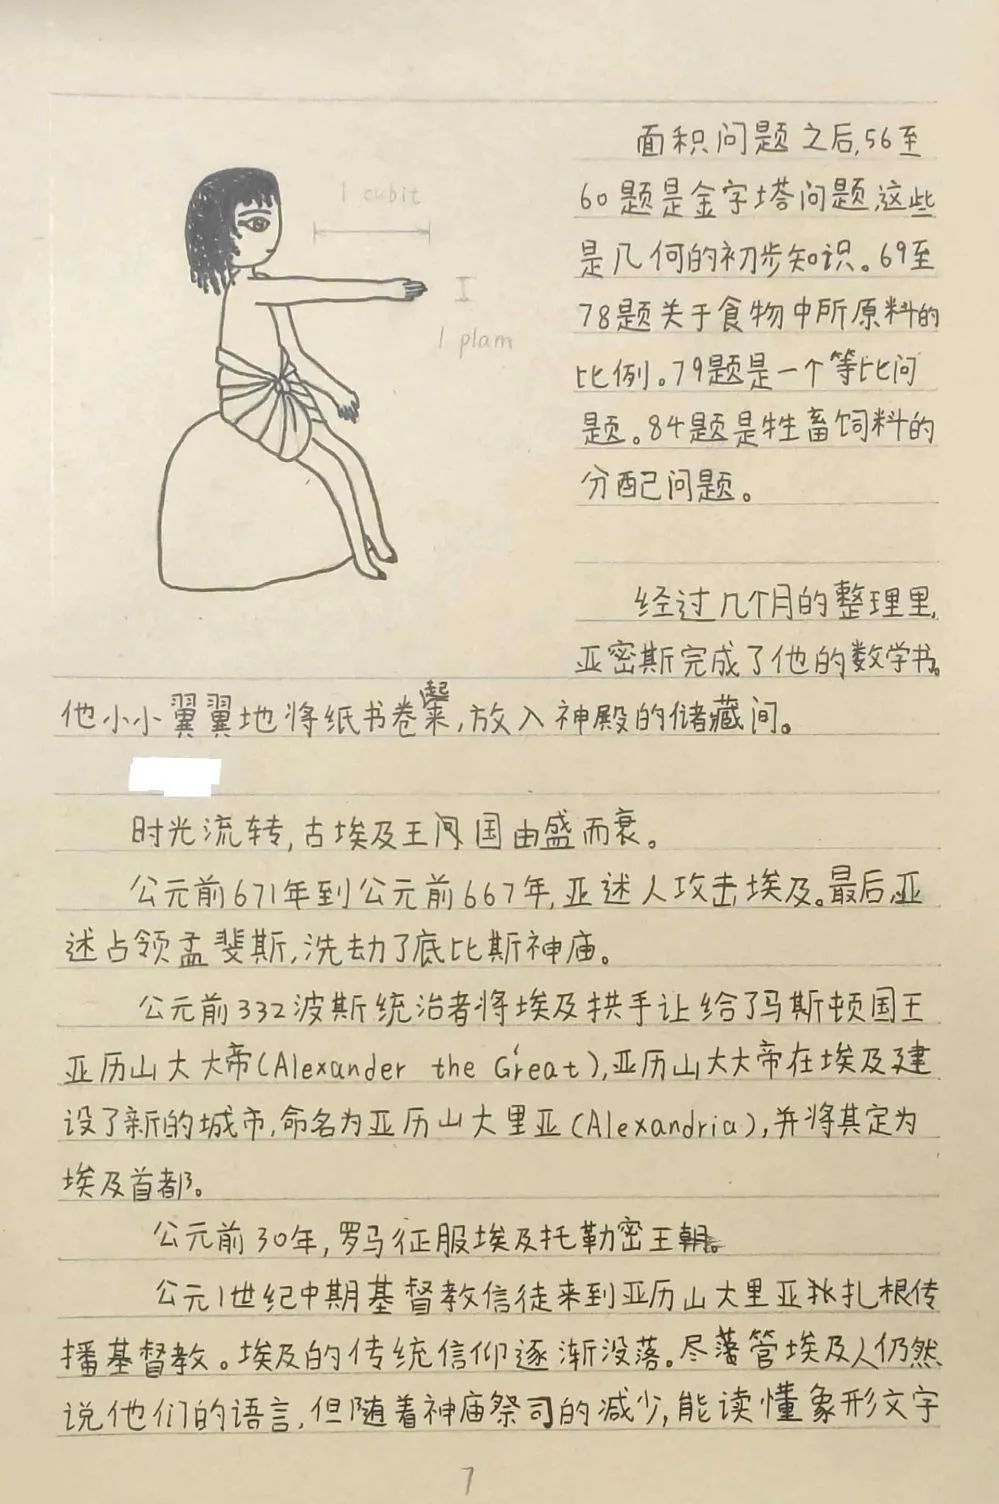 1 cubit
1 plam
面积问题之后,56至
60题是金字塔问题,这些
是几何的初步知识。69至
78题关于食物中所原料的
比例。79题是一个等比问
题。84题是牲畜饲料的
分配问题。
经过几个月的整理里,
亚密斯完成了他的数学书。
他小小翼翼地将纸书卷起来,放入神殿的储藏间。
时光流转,古埃及王国由盛而衰。
公元前671年到公元前667年,亚述人攻击埃及。最后,亚
述占领孟斐斯,洗劫了底比斯神庙。
公元前332波斯统治者将埃及拱手让给了马斯顿国王
亚历山大大帝(Alexander the Great),亚历山大大帝在埃及建
设了新的城市,命名为亚历山大里亚(Alexandria),并将其定为
埃及首都。
公元前30年,罗马征服埃及托勒密王朝。
公元1世纪中期基督教信徒来到亚历山大里亚扎根传
播基督教。埃及的传统信仰逐渐没落。尽管埃及人仍然
说他们的语言,但随着神庙祭司的减少,能读懂象形文字
7